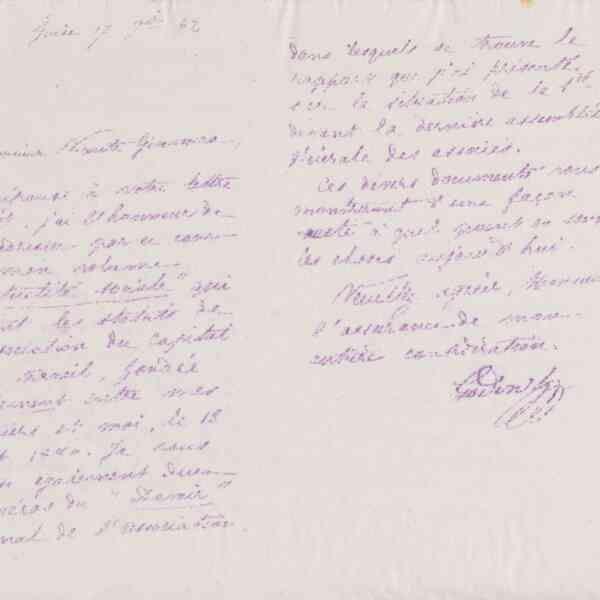 Guise 17 9bre 82
nsieur
réponse à votre lettre
j'ai l'honneur de
par ce cour-
mon volume
tualité sociale" qui
nt les statuts de
sociation du Capital
travail, fondée
entre mes
iers et moi, le 13
t 1880. Je vous
également deux
méros du "Devoir"
nal de l'association.
dans lesquels se trouve le
rapport que j'ai présenté
sur la situation de la Sté
devant la dernière assemblée
générale des associés.
Ces divers documents vous
montreront d'une façon
à quel point en sont
les choses aujourd'hui.
Veuillez agréer, Monsieur
l'assurance de mon
entière considération.
Godin